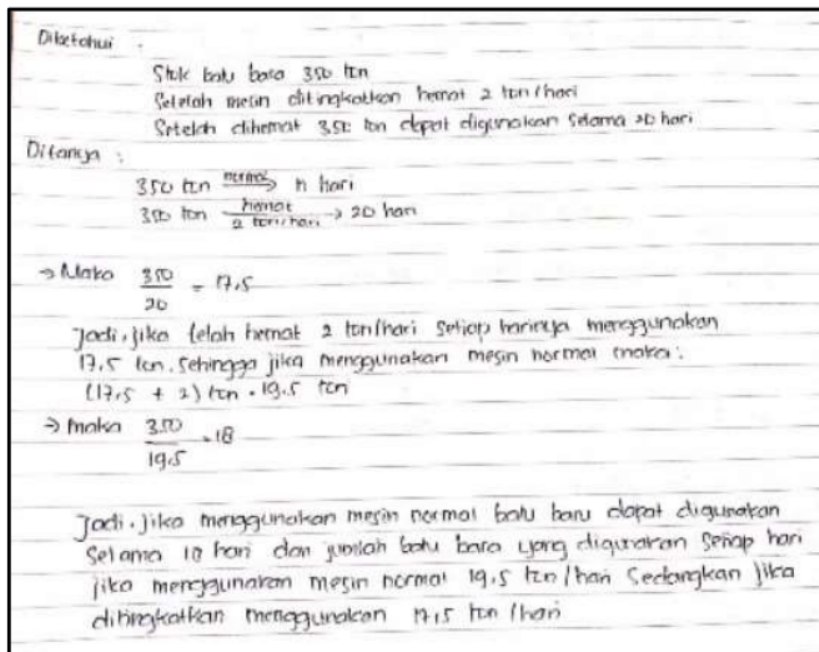 Diketahui :
Stok batu bara 350 ton
Setelah mesin ditingkatkan hemat 2 ton/hari
Setelah dihemat 350 ton dapat digunakan selama 20 hari
Ditanya :
350 ton normal→ n hari
350 ton hemat 2 ton/hari → 20 hari
→ Maka 350/20 = 17,5
Jadi, jika telah hemat 2 ton/hari setiap harinya menggunakan
17,5 ton. Sehingga jika menggunakan mesin normal maka:
(17,5 + 2) ton = 19,5 ton
→ maka 350/19,5 = 18
Jadi, jika menggunakan mesin normal batu baru dapat digunakan
selama 18 hari dan jumlah batu bara yang digunakan setiap hari
jika menggunakan mesin normal 19,5 ton/hari sedangkan jika
ditingkatkan menggunakan 17,5 ton/hari